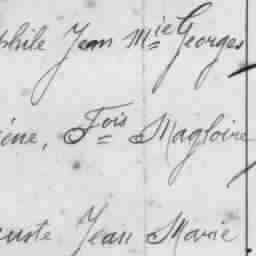 phile Jean Mie Georges
ène, Fois Magloire
uste Jean Marie